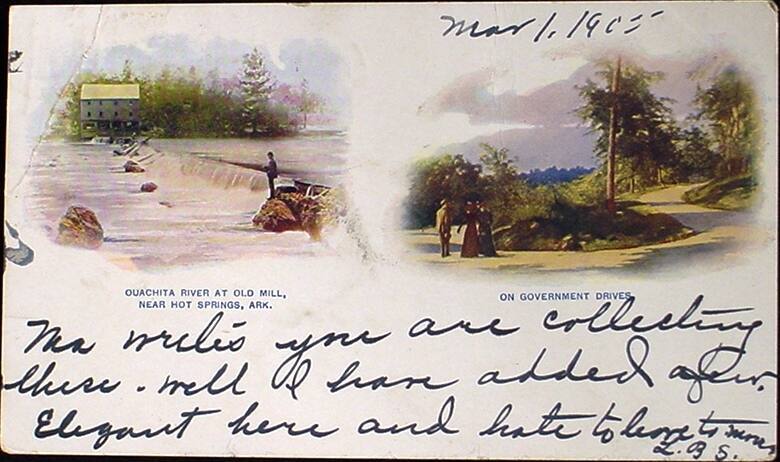 Mar 1. 1905
OUACHITA RIVER AT OLD MILL,
NEAR HOT SPRINGS, ARK.
ON GOVERNMENT DRIVES
Ma writes you are collecting
these. well I have added a few.
Elegant here and hate to leave to morrow
L. B. S.